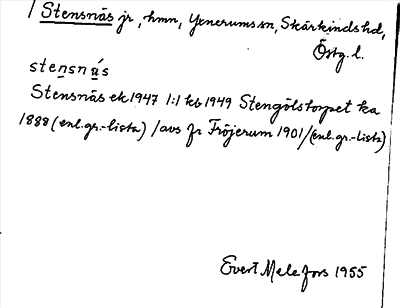 / Stensnäs jr, hmn, Yxnerums sn, Skärkinds hd,
Östg. l.
stensnás
Stensnäs ek 1947 1:1 kb 1949 Stengölstorpet ka
1888 (enl. gr.-lista) / avs fr Fröjerum 1901/ (enl. gr.-lista)
Evert Melefors 1955